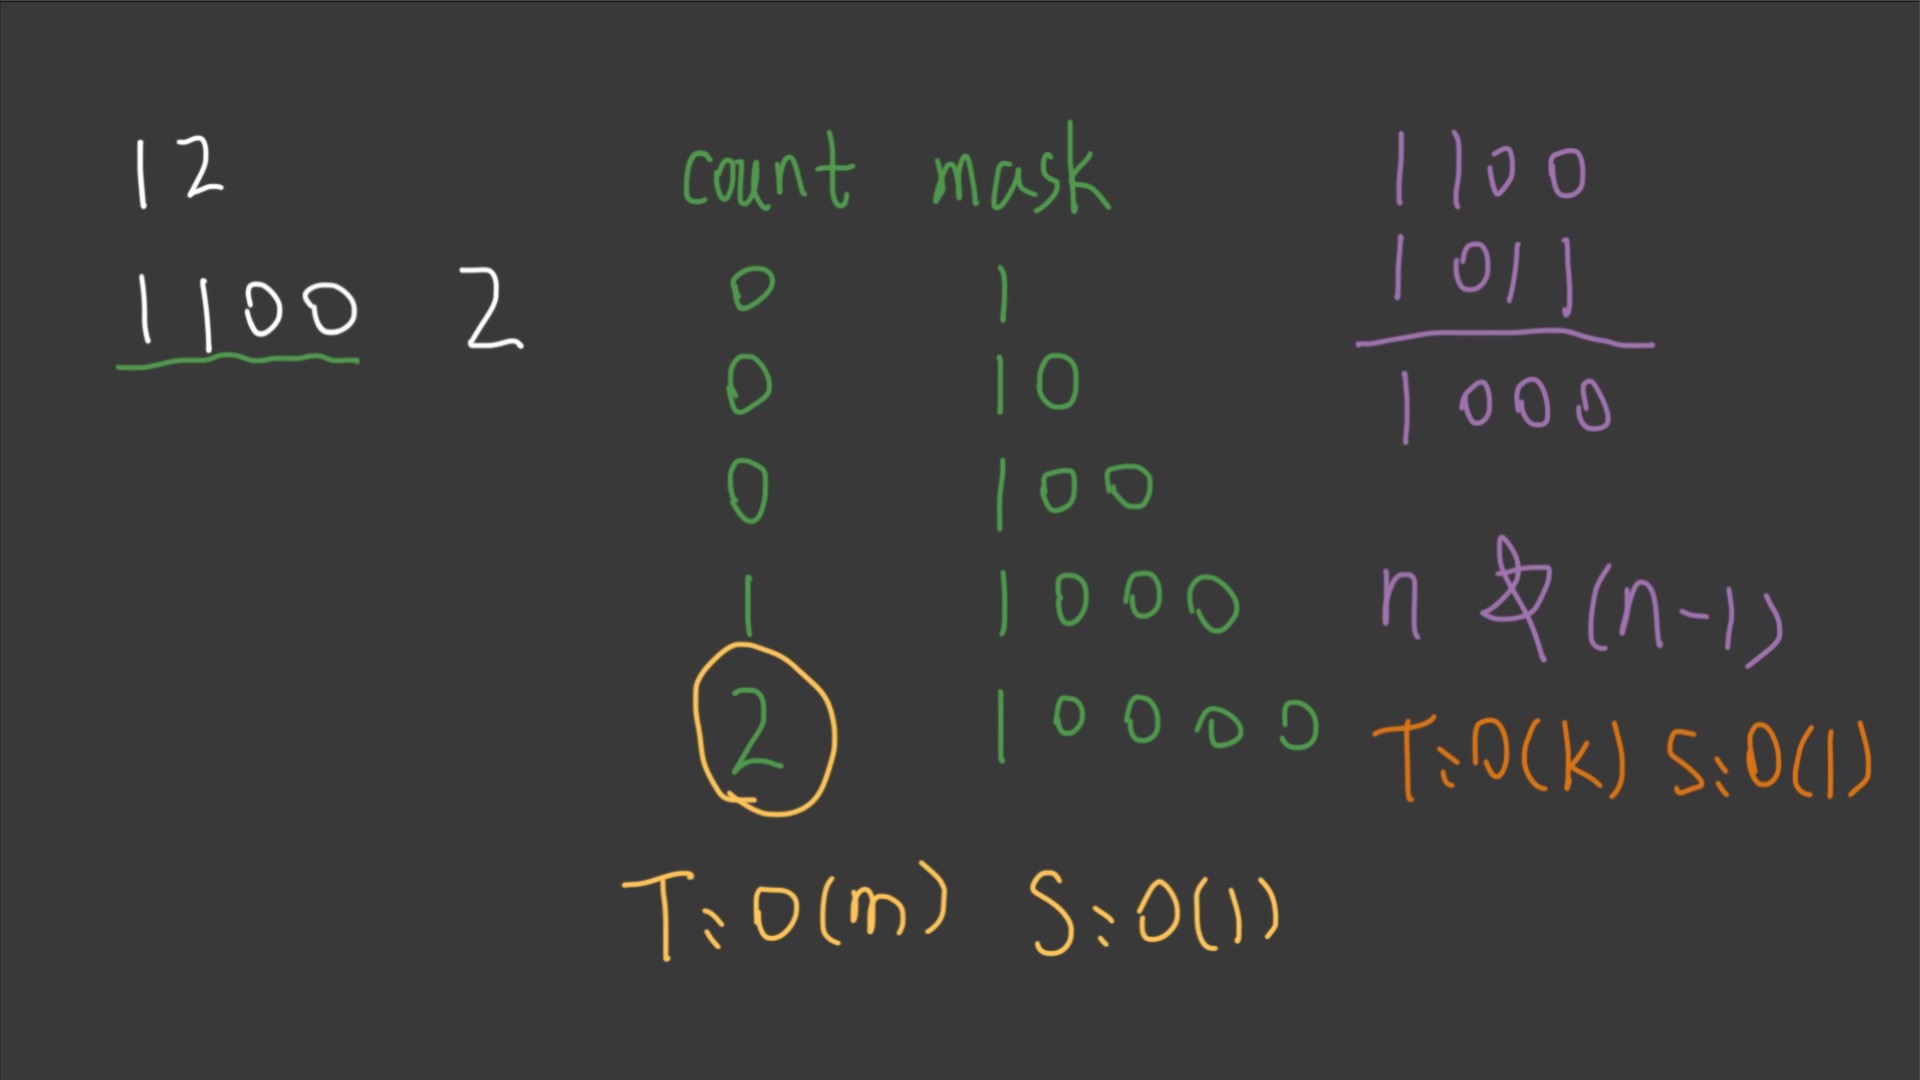 12
1100 2
count mask
0 1
0 10
0 100
1 1000
2 10000
T:O(m) S:O(1)
1100
1011
1000
n&(n-1)
T:O(k) S:O(1)